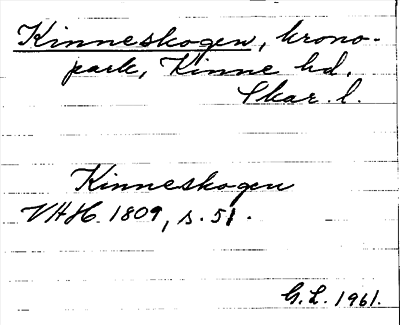 Kinneskogen, krono-
park, Kinne hd,
Skar. l.
Kinneskogen
VHH. 1809, s. 51.
G.L. 1961.